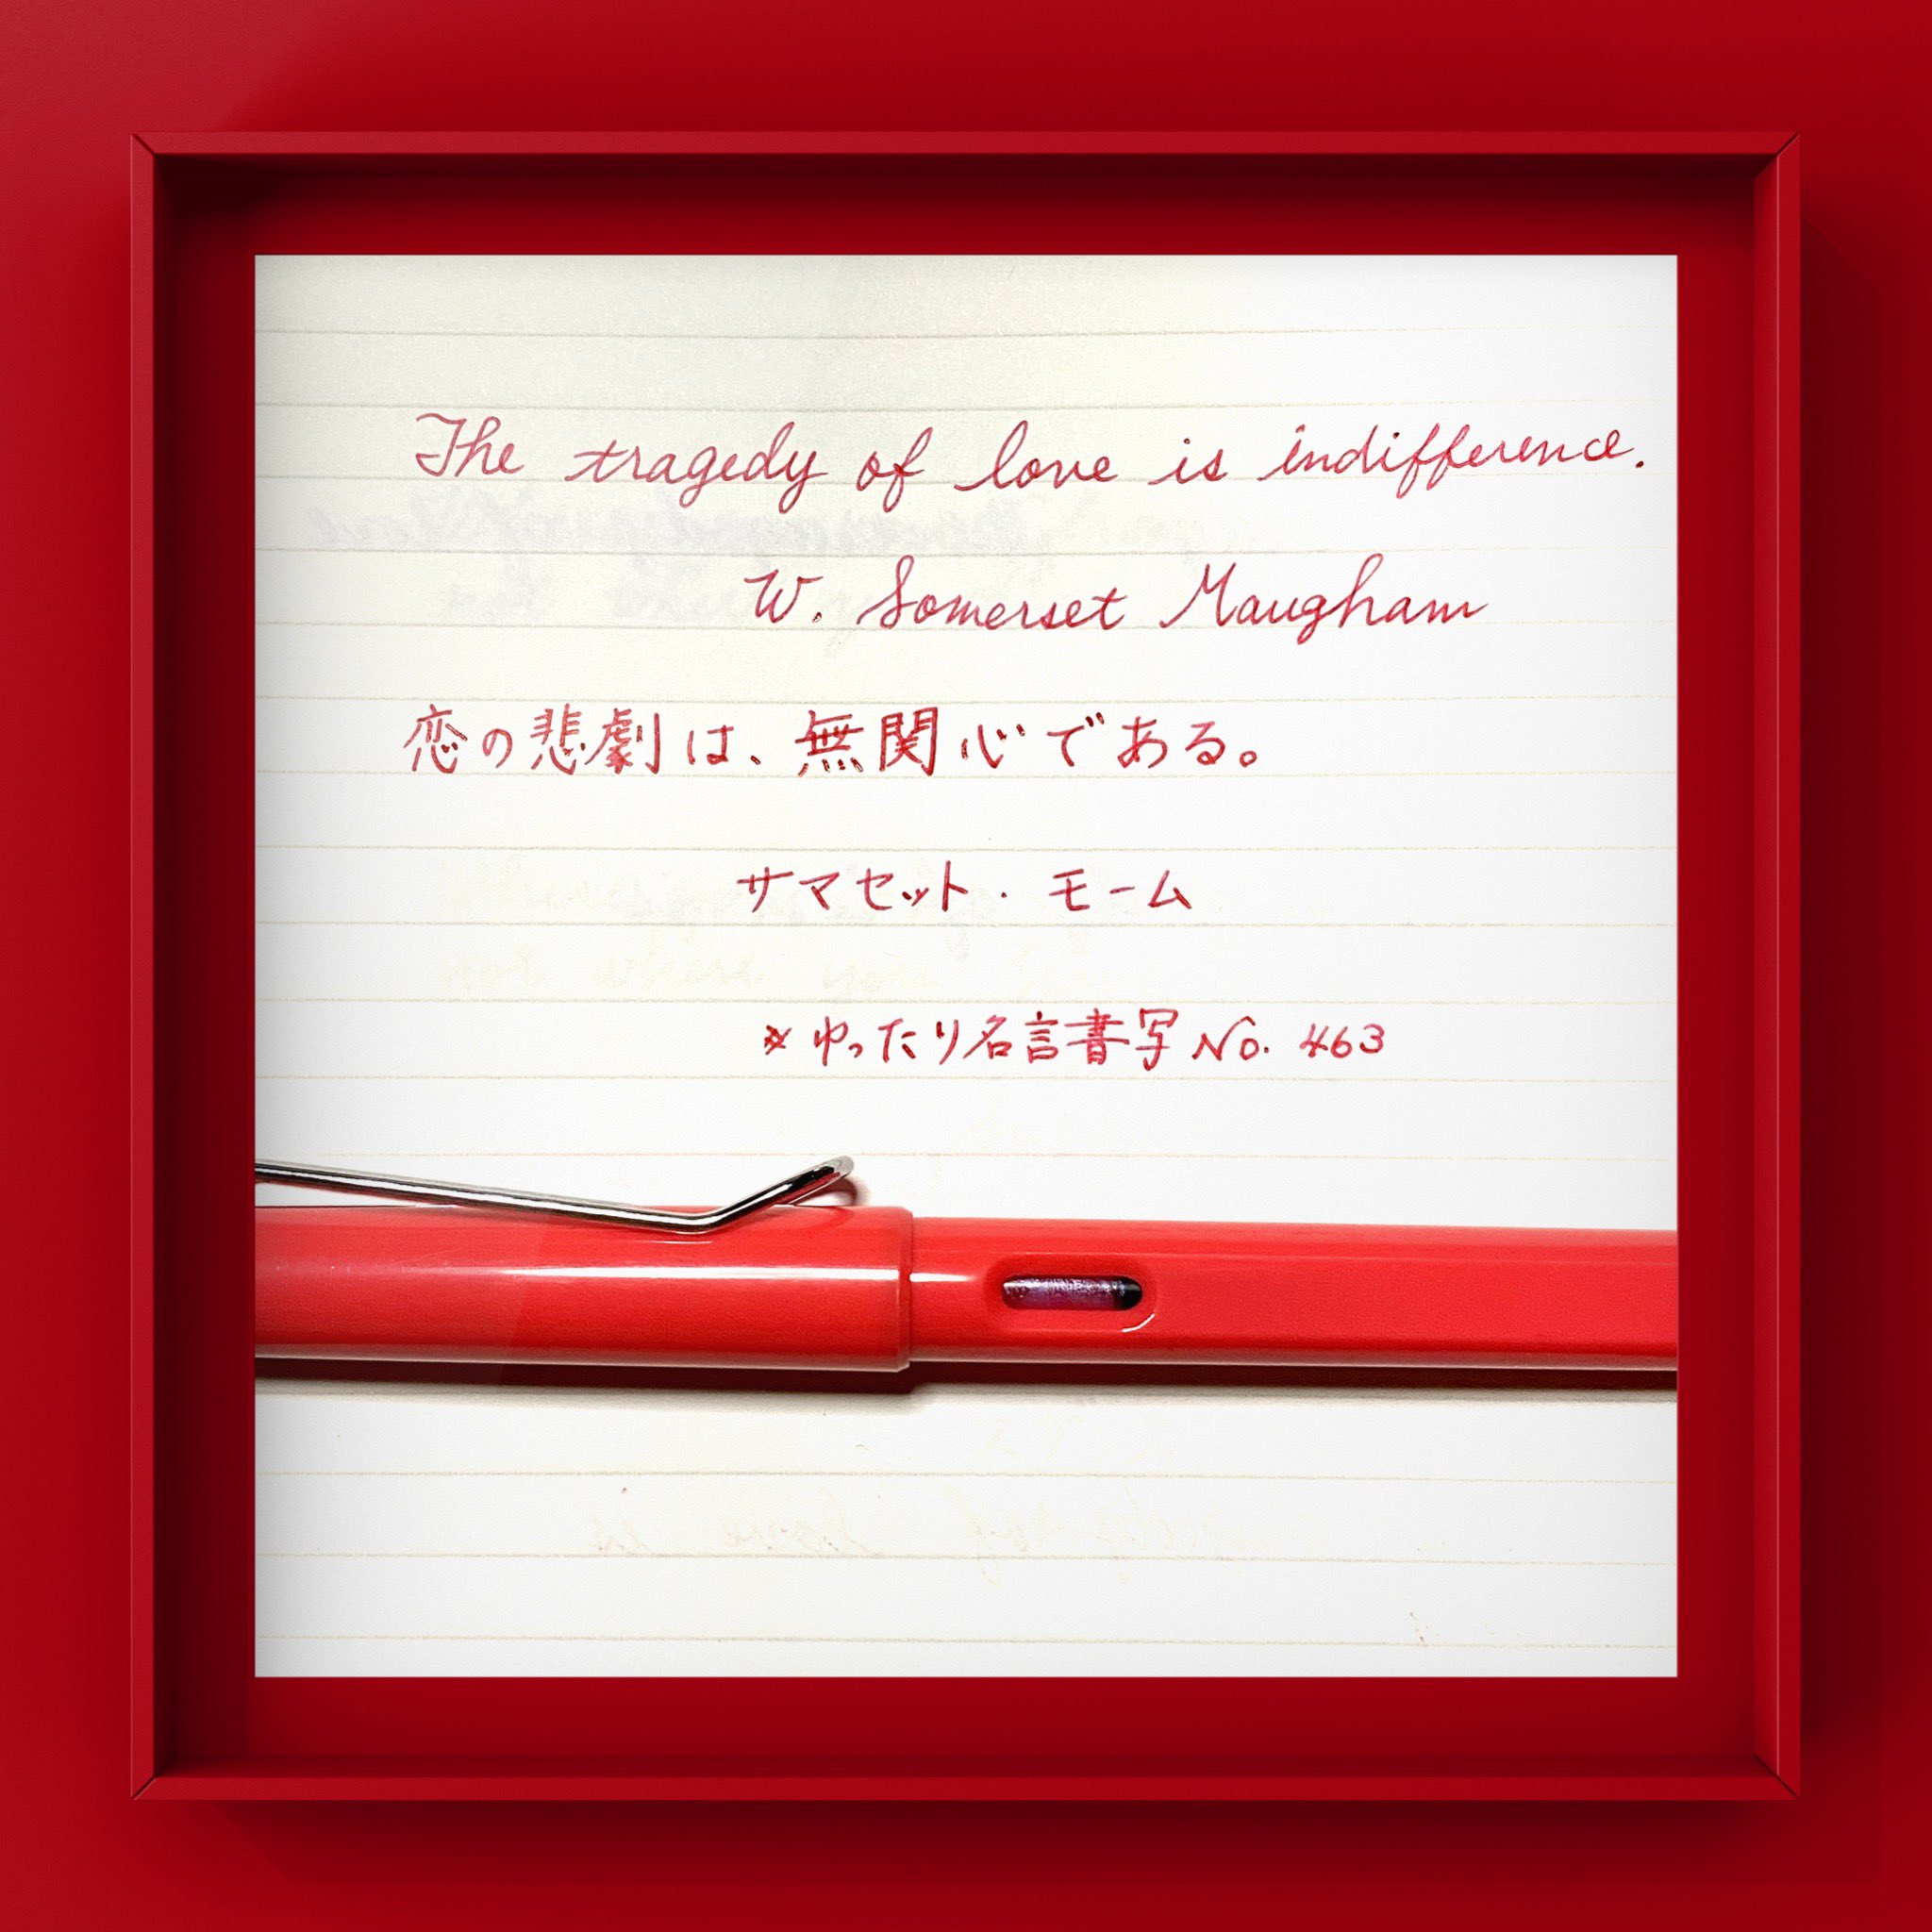 The tragedy of love is indifference.
W. Somerset Maugham
恋の悲劇は、無関心である。
サマセット・モーム
※ゆったり名言書写 No. 463